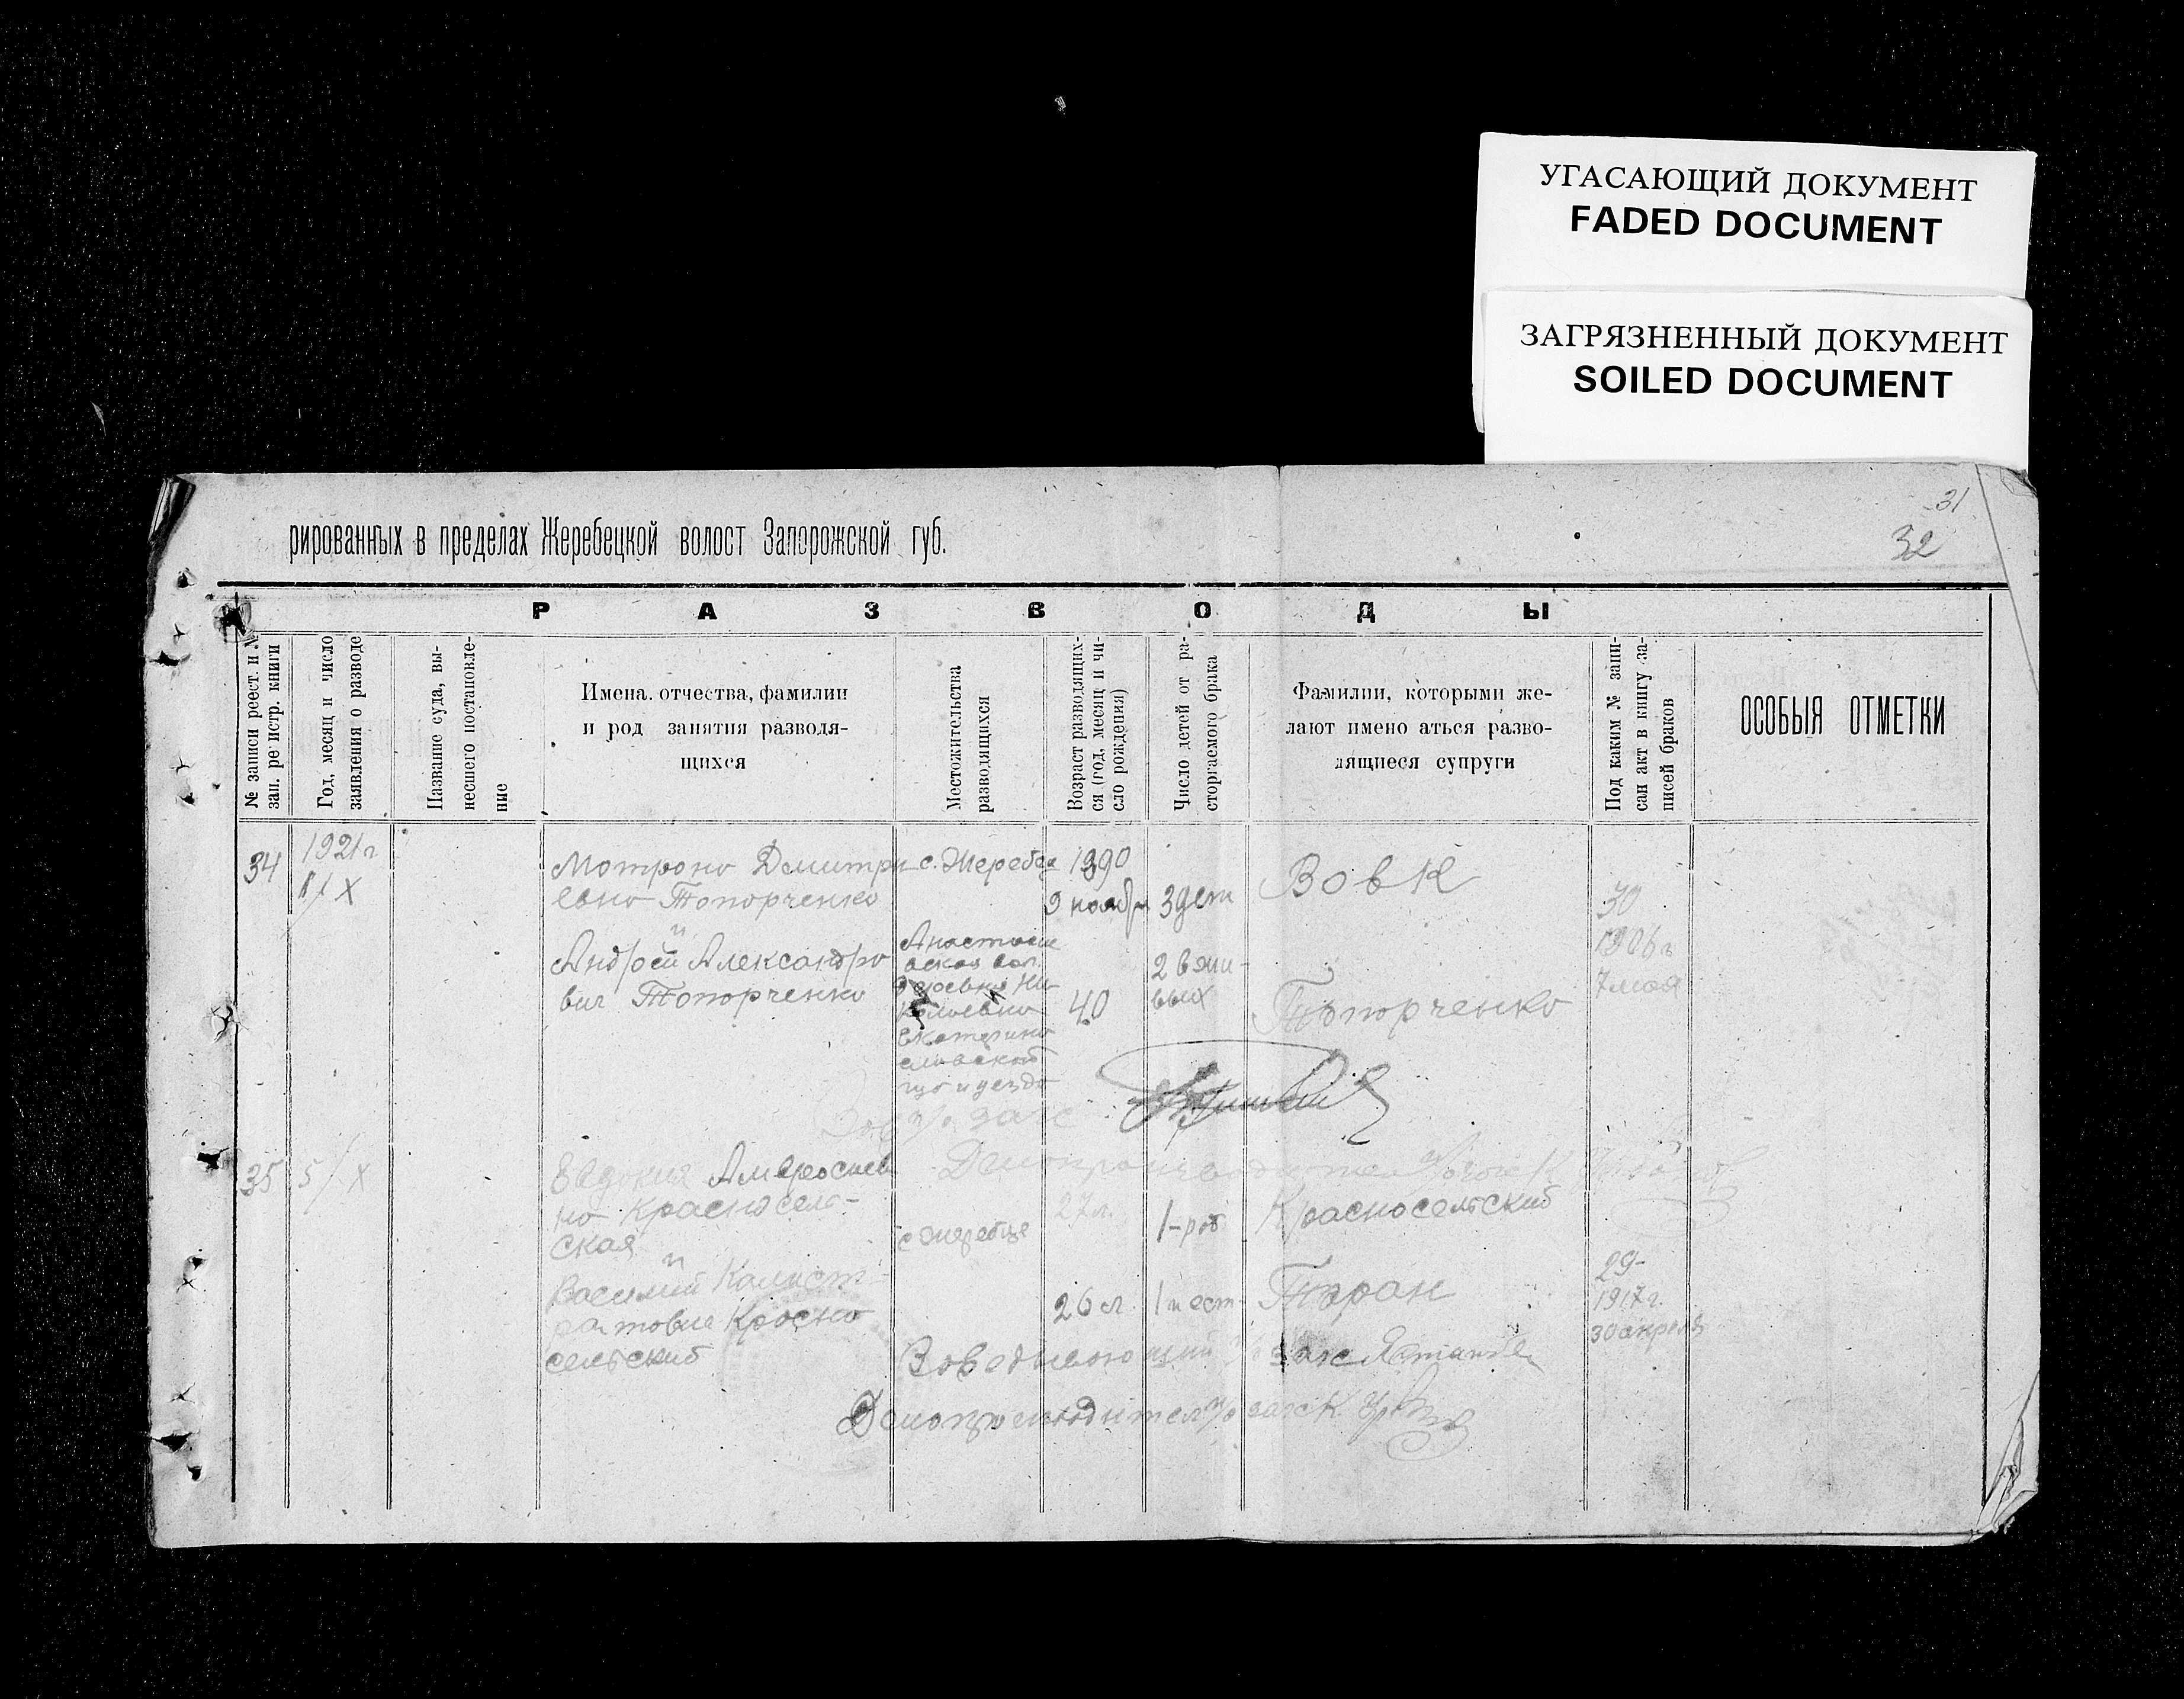 УГАСАЮЩИЙ ДОКУМЕНТ
FADED DOCUMENT
ЗАГРЯЗНЕННЫЙ ДОКУМЕНТ
SOILED DOCUMENT
31
32
рированных в пределах Жеребецкой волост Запорожской губ.
Р А З В О Д Ы
№ записи реест. и №
зап. ре истр. книги
Год, месяц и число
заявления о разводе
Название суда, вы-
несшего постановле-
ние
Имена. отчества, фамилии
и род занятия разводя-
щихся
Местожительства
разводящихся
Возраст разводящих-
ся (год, месяц и чи-
сло рождения)
Число детей от ра-
сторгаемого брака
Фамилии, которыми же-
лают имено аться разво-
дящиеся супруги
Под каким № запи-
сан акт в книгу за-
писей браков
ОСОБЫЯ ОТМЕТКИ
34
1921 г
1/X
Мотрона Дмитри
евна Топорченко
и
Андрей Александро
вич Топорченко
с. Жеребец
Анастасие
вская вол.
деревня Ни
колаевка
Екатерино
славской
губ и уезда
9 ноября
40
3 дети
2 в жи-
вых
Вовк
Топорченко
30
1906 г
7 мая
35
5/X
Евдокия Амвросиев
на Красносель-
ская
и
Василий Калист-
ратович Красно
сельский
с Жеребце
27 л.
26 л.
1-
1
Красносельский
Таран
29-
1917 г.
30 апреля
Заведывающий
Делопроизводитель